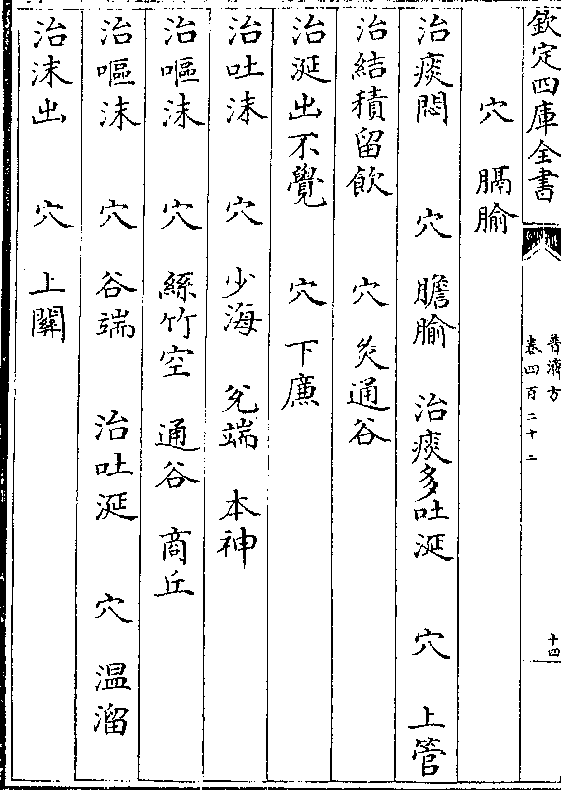 欽定四庫全書
普濟方
卷四百二十二
十四
穴 膈腧
治痰悶 穴 膽腧 治痰多吐涎 穴 上管
治結積留飲 穴 灸通谷
治涎出不覺 穴 下廉
治吐沫 穴 少海 兊端 本神
治嘔沫 穴 絲竹空 通谷 商丘
治嘔沫 穴 谷端 治吐涎 穴 温溜
治沫出 穴 上關